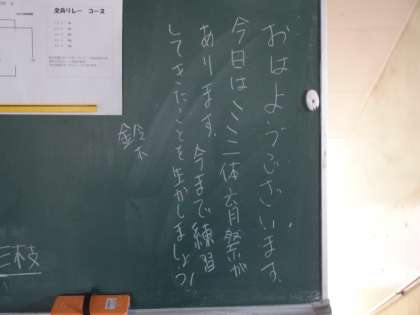 おはようございます。
今日はミニ体育祭が
あります。今まで練習
してきたことを生かしましょう!
鈴木
全員リレー　コース
三枝